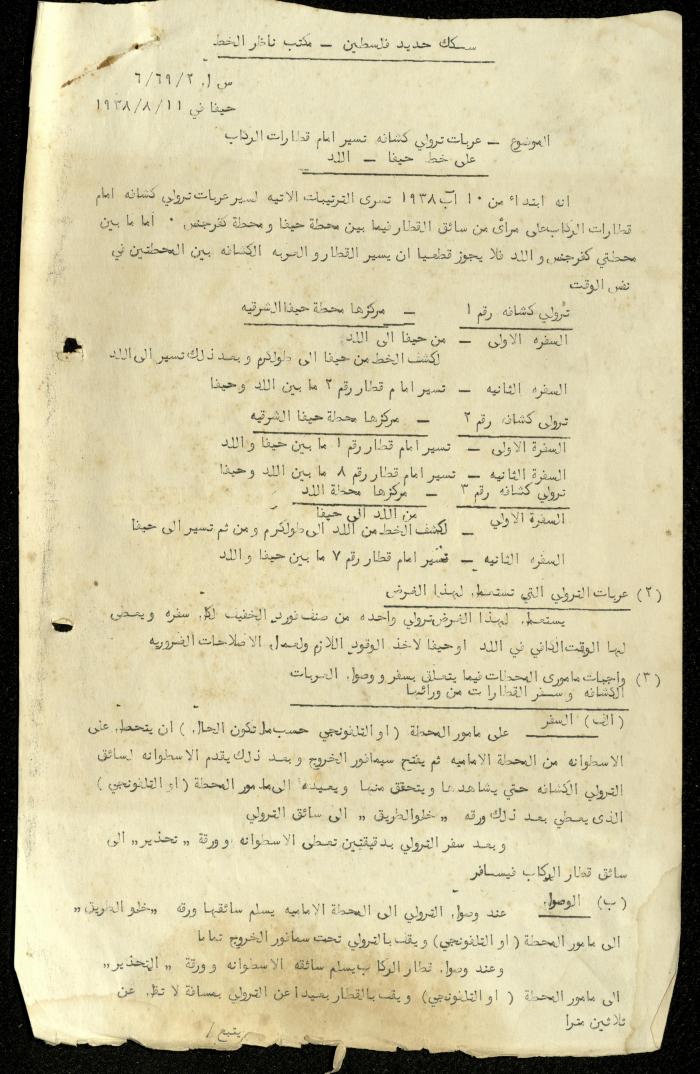 سكك حديد فلسطين – مكتب ناظر الخط
س ا. ٢/ ٦٩/ ٦
حيفا في ١١/ ٨/ ١٩٣٨
الموضوع – عربات ترولي كشافه تسير امام قطارات الركاب
على خط حيفا – اللد
انه ابتداء من ١٠ آب ١٩٣٨ تسرى الترتيبات الاتيه لسير عربات ترولي كشافه امام
قطارات الركاب على مرأى من سائق القطار فيما بين محطة حيفا ومحطة كفرجنس ٠ اما ما بين
محطتي كفرجنس و اللد فلا يجوز قطعيا ان يسير القطار و العربه الكشافه بين المحطتين في
نفس الوقت
ترولي كشافه رقم ١ – مركزها محطة حيفا الشرقيه
السفره الاولى – من حيفا الى اللد
لكشف الخط من حيفا الى طولكرم و بعد ذلك تسير الى اللد
السفره الثانيه – تسير امام قطار رقم ٢ ما بين اللد وحيفا
ترولى كشافه رقم ٢ – مركزها محطة حيفا الشرقيه
السفرة الاولى – تسير امام قطار رقم ١ ما بين حيفا و اللد
السفرة الثانيه – تسير امام قطار رقم ٨ ما بين اللد وحيفا
ترولي كشافه رقم ٣ – مركزها محطة اللد
السفرة الاولي – من اللد الى حيفا
– لكشف الخط من اللد الى طولكرم و من ثم تسير الى حيفا
السفره الثانيه – تسير امام قطار رقم ٧ ما بين حيفا و اللد
(٢) عربات الترولي التي تستعمل لهذا الغرض
يستعمل لهذا الغرض ترولي واحده من صنف فورد الخفيف لكل سفره و يعطى
لها الوقت الكافي في اللد او حيفا لاخذ الوقود اللازم ولعمل الاصلاحات الضروريه
(٣) واجبات مامورى المحطات فيما يتعلق بسفر و وصول العربات
الكشافه و سفر القطارات من ورائها
(الف) السفر على مامور المحطة (او التلفونجي حسب ما تكون الحال) ان يتحصل على
الاسطوانه من المحطة الاماميه ثم يفتح سيمافور الخروج و بعد ذلك يقدم الاسطوانه لسائق
الترولي الكشافه حتي يشاهدها و يتحقق منها و يعيدها الى مامور المحطة (او التلفونجي)
الذى يعطي بعد ذلك ورقه „ خلو الطريق „ الى سائق الترولي
و بعد سفر الترولي بدقيقتين تعطى الاسطوانه و ورقة „ تحذير „ الى
سائق قطار الركاب فيسافر
(ب) الوصول عند وصول الترولي الى المحطة الاماميه يسلم سائقها ورقه „ خلو الطريق „
الى مامور المحطة (او التلفونجي) و يقف بالترولي تحت سمافور الخروج تماما
و عند وصول قطار الركاب يسلم سائقه الاسطوانه و ورقة „ التحذير „
الى مامور المحطة (او التلفونجي) و يقف بالقطار بعيدا عن الترولي بمسافة لا تقل عن
ثلاثين مترا
يتبع /